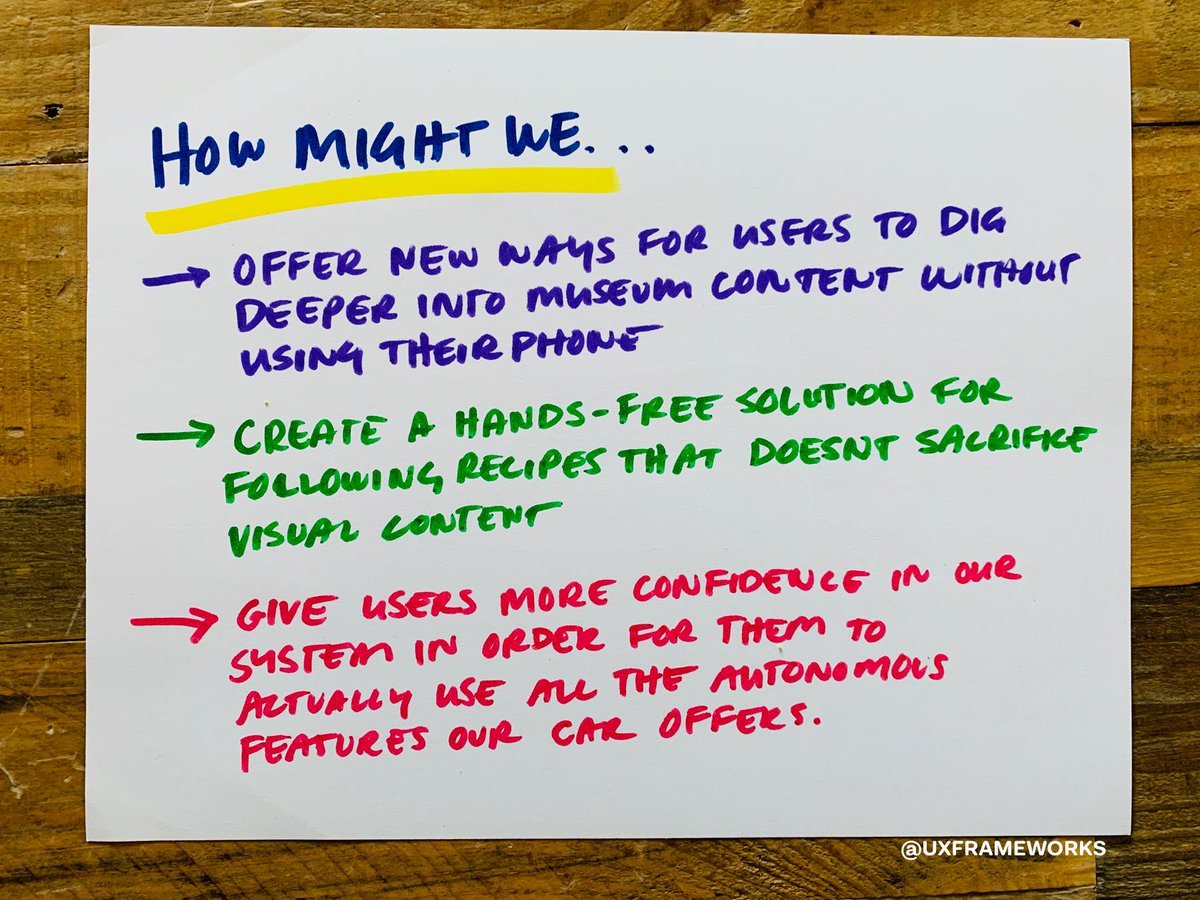 HOW MIGHT WE...
→ OFFER NEW WAYS FOR USERS TO DIG
DEEPER INTO MUSEUM CONTENT WITHOUT
USING THEIR PHONE
→ CREATE A HANDS-FREE SOLUTION FOR
FOLLOWING RECIPES THAT DOESNT SACRIFICE
VISUAL CONTENT
→ GIVE USERS MORE CONFIDENCE IN OUR
SYSTEM IN ORDER FOR THEM TO
ACTUALLY USE ALL THE AUTONOMOUS
FEATURES OUR CAR OFFERS.
@UXFRAMEWORKS